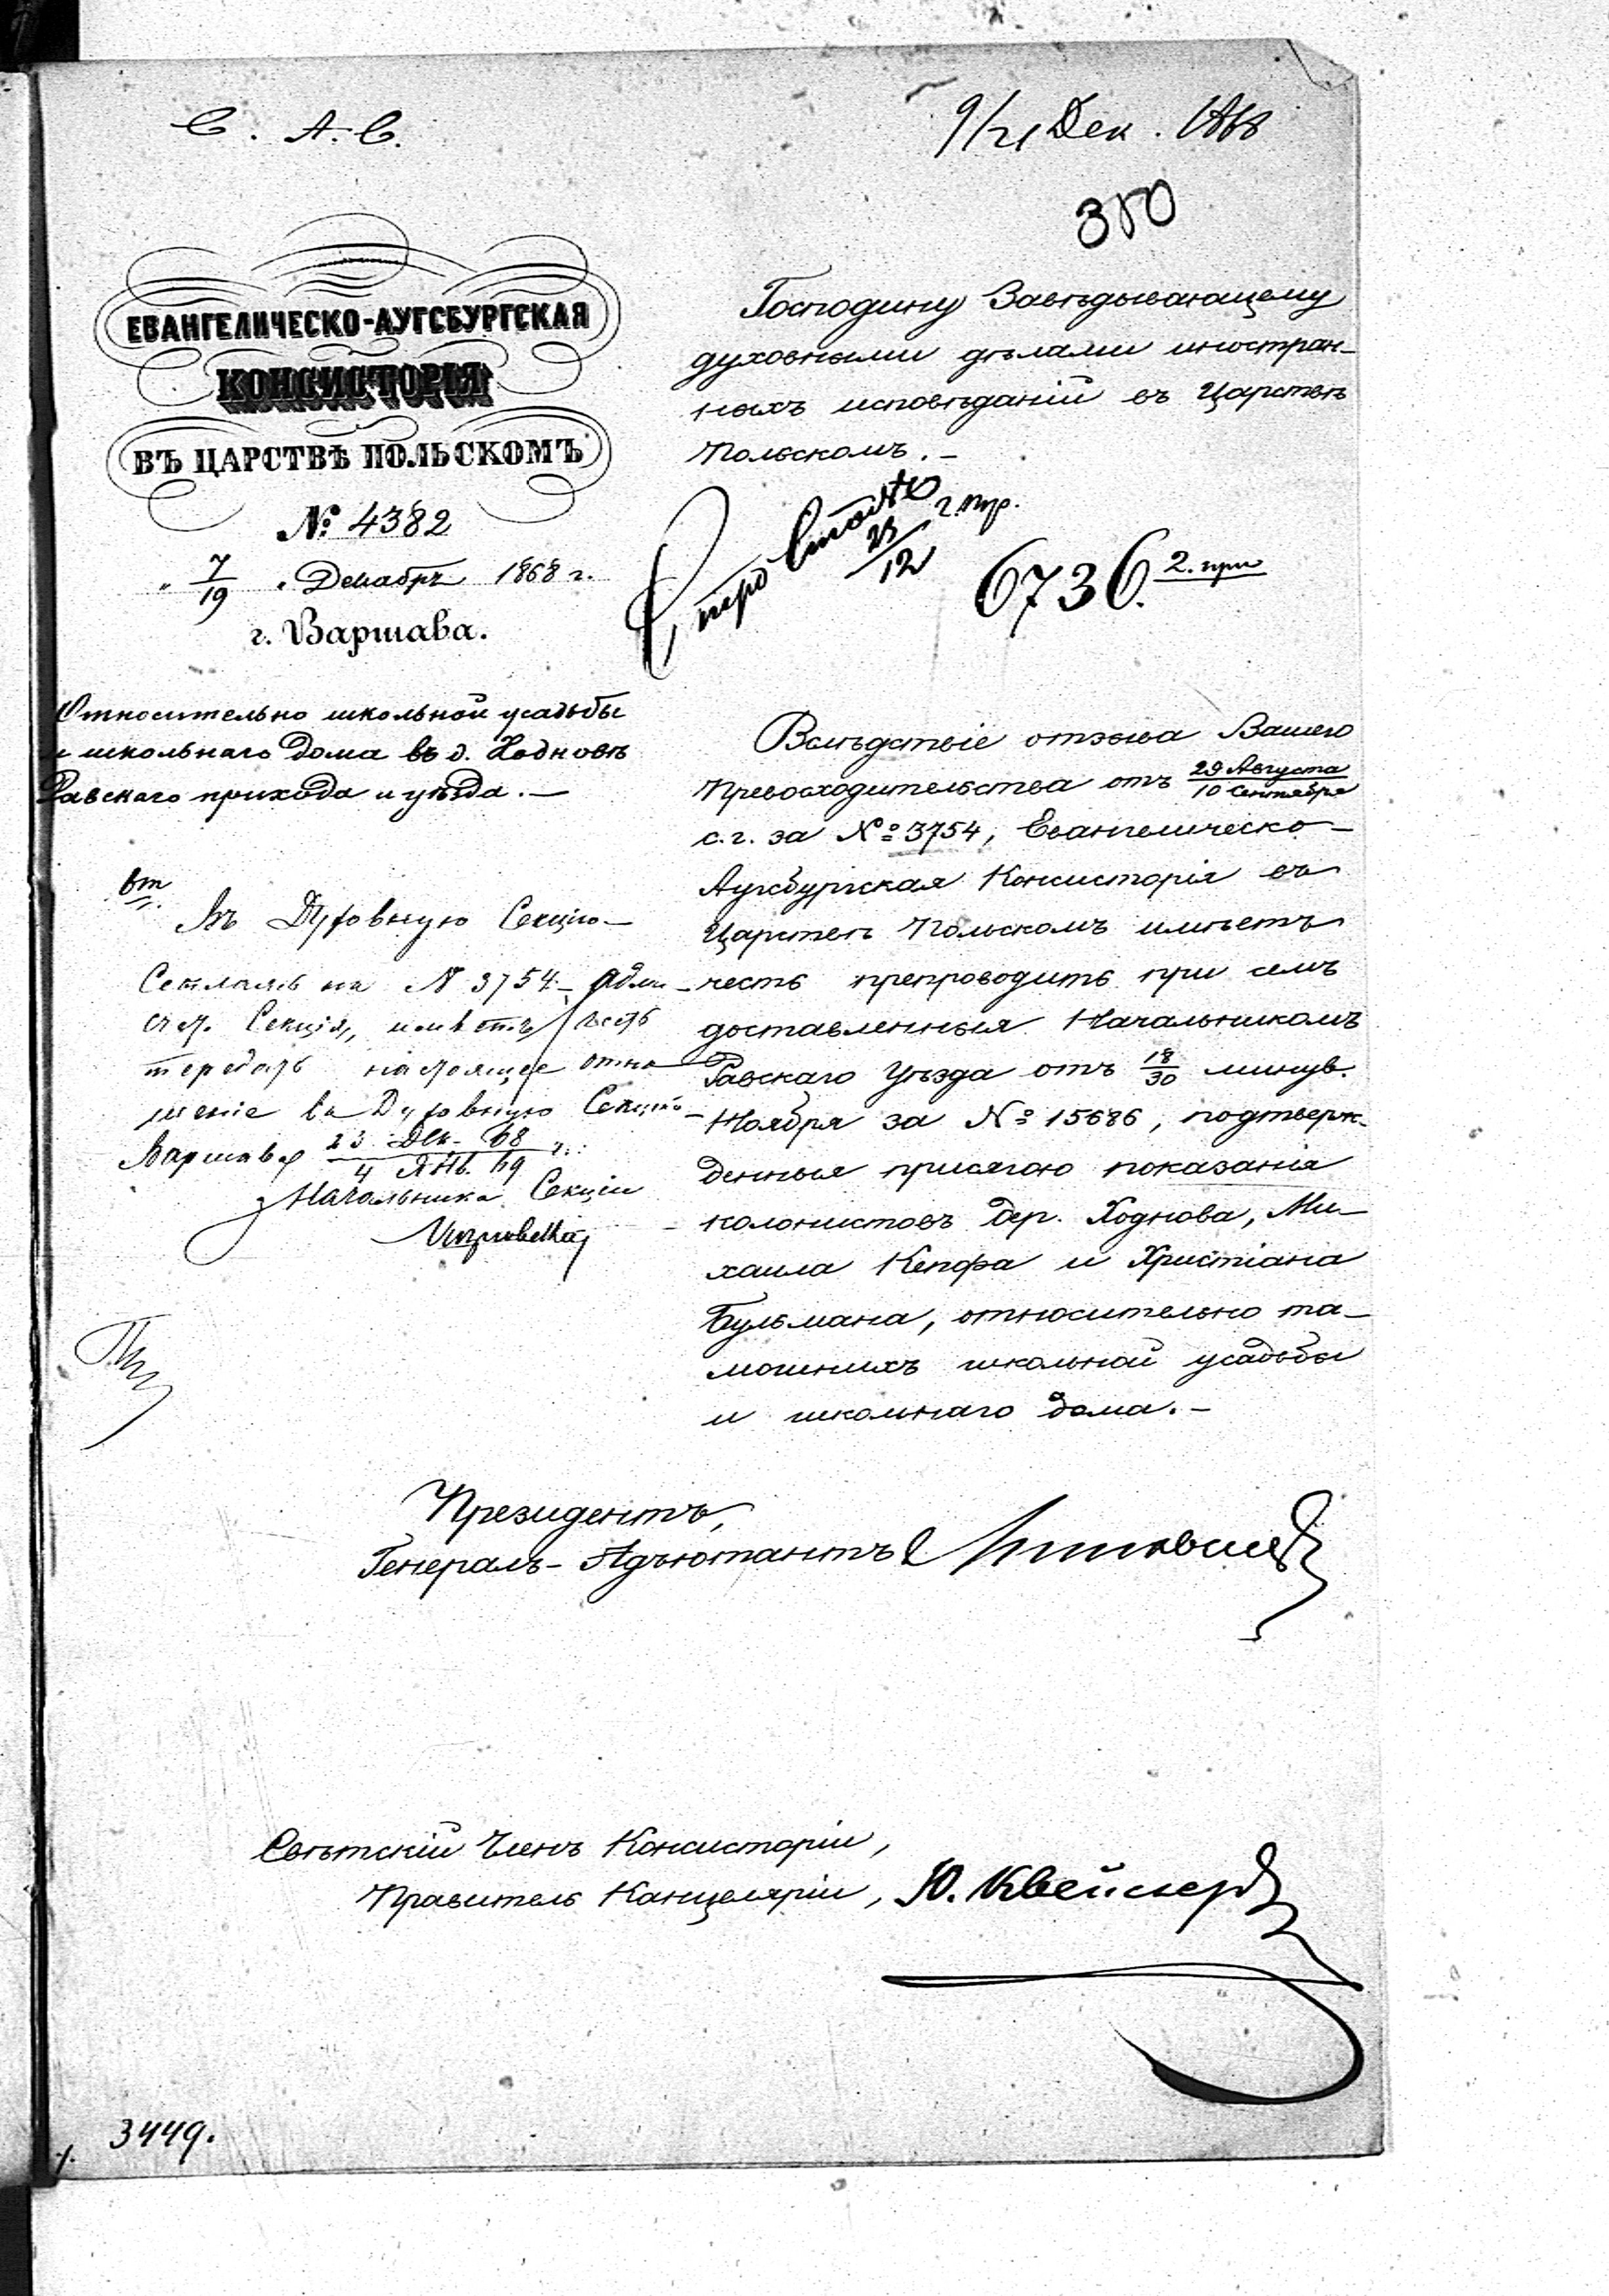 С. А. С.
9/21 Дек. 1868
350
ЕВАНГЕЛИЧЕСКО-АУГСБУРГСКАЯ
КОНСИСТОРІЯ
ВЪ ЦАРСТВѢ ПОЛЬСКОМЪ
№ 4382
„ 7/19 „ Декабря 1868 г.
г. Варшава.
Относительно школьной усадьбы
и школьнаго дома въ д. Ходновѣ
Равскаго прихода и уѣзда. —
Въ Духовную Секцію
на № 3754 —
Секція, имѣетъ честь
передать настоящее отно
шеніе въ Духовную Секцію —
Варшава 23 Дек. 68 / 4 Янв. 69 г.
Начальника Секціи
Господину Завѣдывающему
духовными дѣлами иностран-
ныхъ исповѣданій въ Царствѣ
Польскомъ. —
23/12
6736. 2. при
Вслѣдствіе отзыва Вашего
Превосходительства отъ 29 Августа / 10 Сентября
с. г. за № 3754, Евангелическо-
Аугсбургская Консисторія въ
Царствѣ Польскомъ имѣетъ
честь препроводить при семъ
доставленныя Начальникомъ
Равскаго Уѣзда отъ 18/30 минув.
Ноября за № 15686, подтверж-
денныя присягою показанія
колонистовъ дер. Ходнова, Ми-
хаила Кепфа и Христіана
Бульмана, относительно та-
мошнихъ школьной усадьбы
и школьнаго дома. —
Президентъ,
Генералъ-Адъютантъ
Свѣтскій Членъ Консисторіи,
Правитель Канцеляріи, Ю. Квейсер
3449.